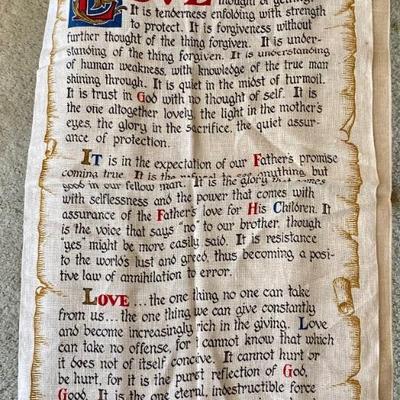 LOVE thought of getting.
It is tenderness enfolding with strength
to protect. It is forgiveness without
further thought of the thing forgiven. It is under-
standing of the thing forgiven. It is understanding
of human weakness, with knowledge of the true man
shining through. It is quiet in the midst of turmoil.
It is trust in God with no thought of self. It is
the one altogether lovely, the light in the mother's
eyes, the glory in the sacrifice, the quiet assur-
ance of protection.
IT is in the expectation of our Father's promise
coming true. It is the refusal to see anything but
good in our fellow man. It is the glory that comes
with selflessness and the power that comes with
assurance of the Father's love for His Children. It
is the voice that says "no" to our brother, though
"yes" might be more easily said. It is resistance
to the world's lust and greed, thus becoming a posi-
tive law of annihilation to error.
LOVE ... the one thing no one can take
from us ... the one thing we can give constantly
and become increasingly rich in the giving. Love
can take no offense, for it cannot know that which
it does not of itself conceive. It cannot hurt or
be hurt, for it is the purest reflection of God,
Good. It is the one eternal, indestructible force